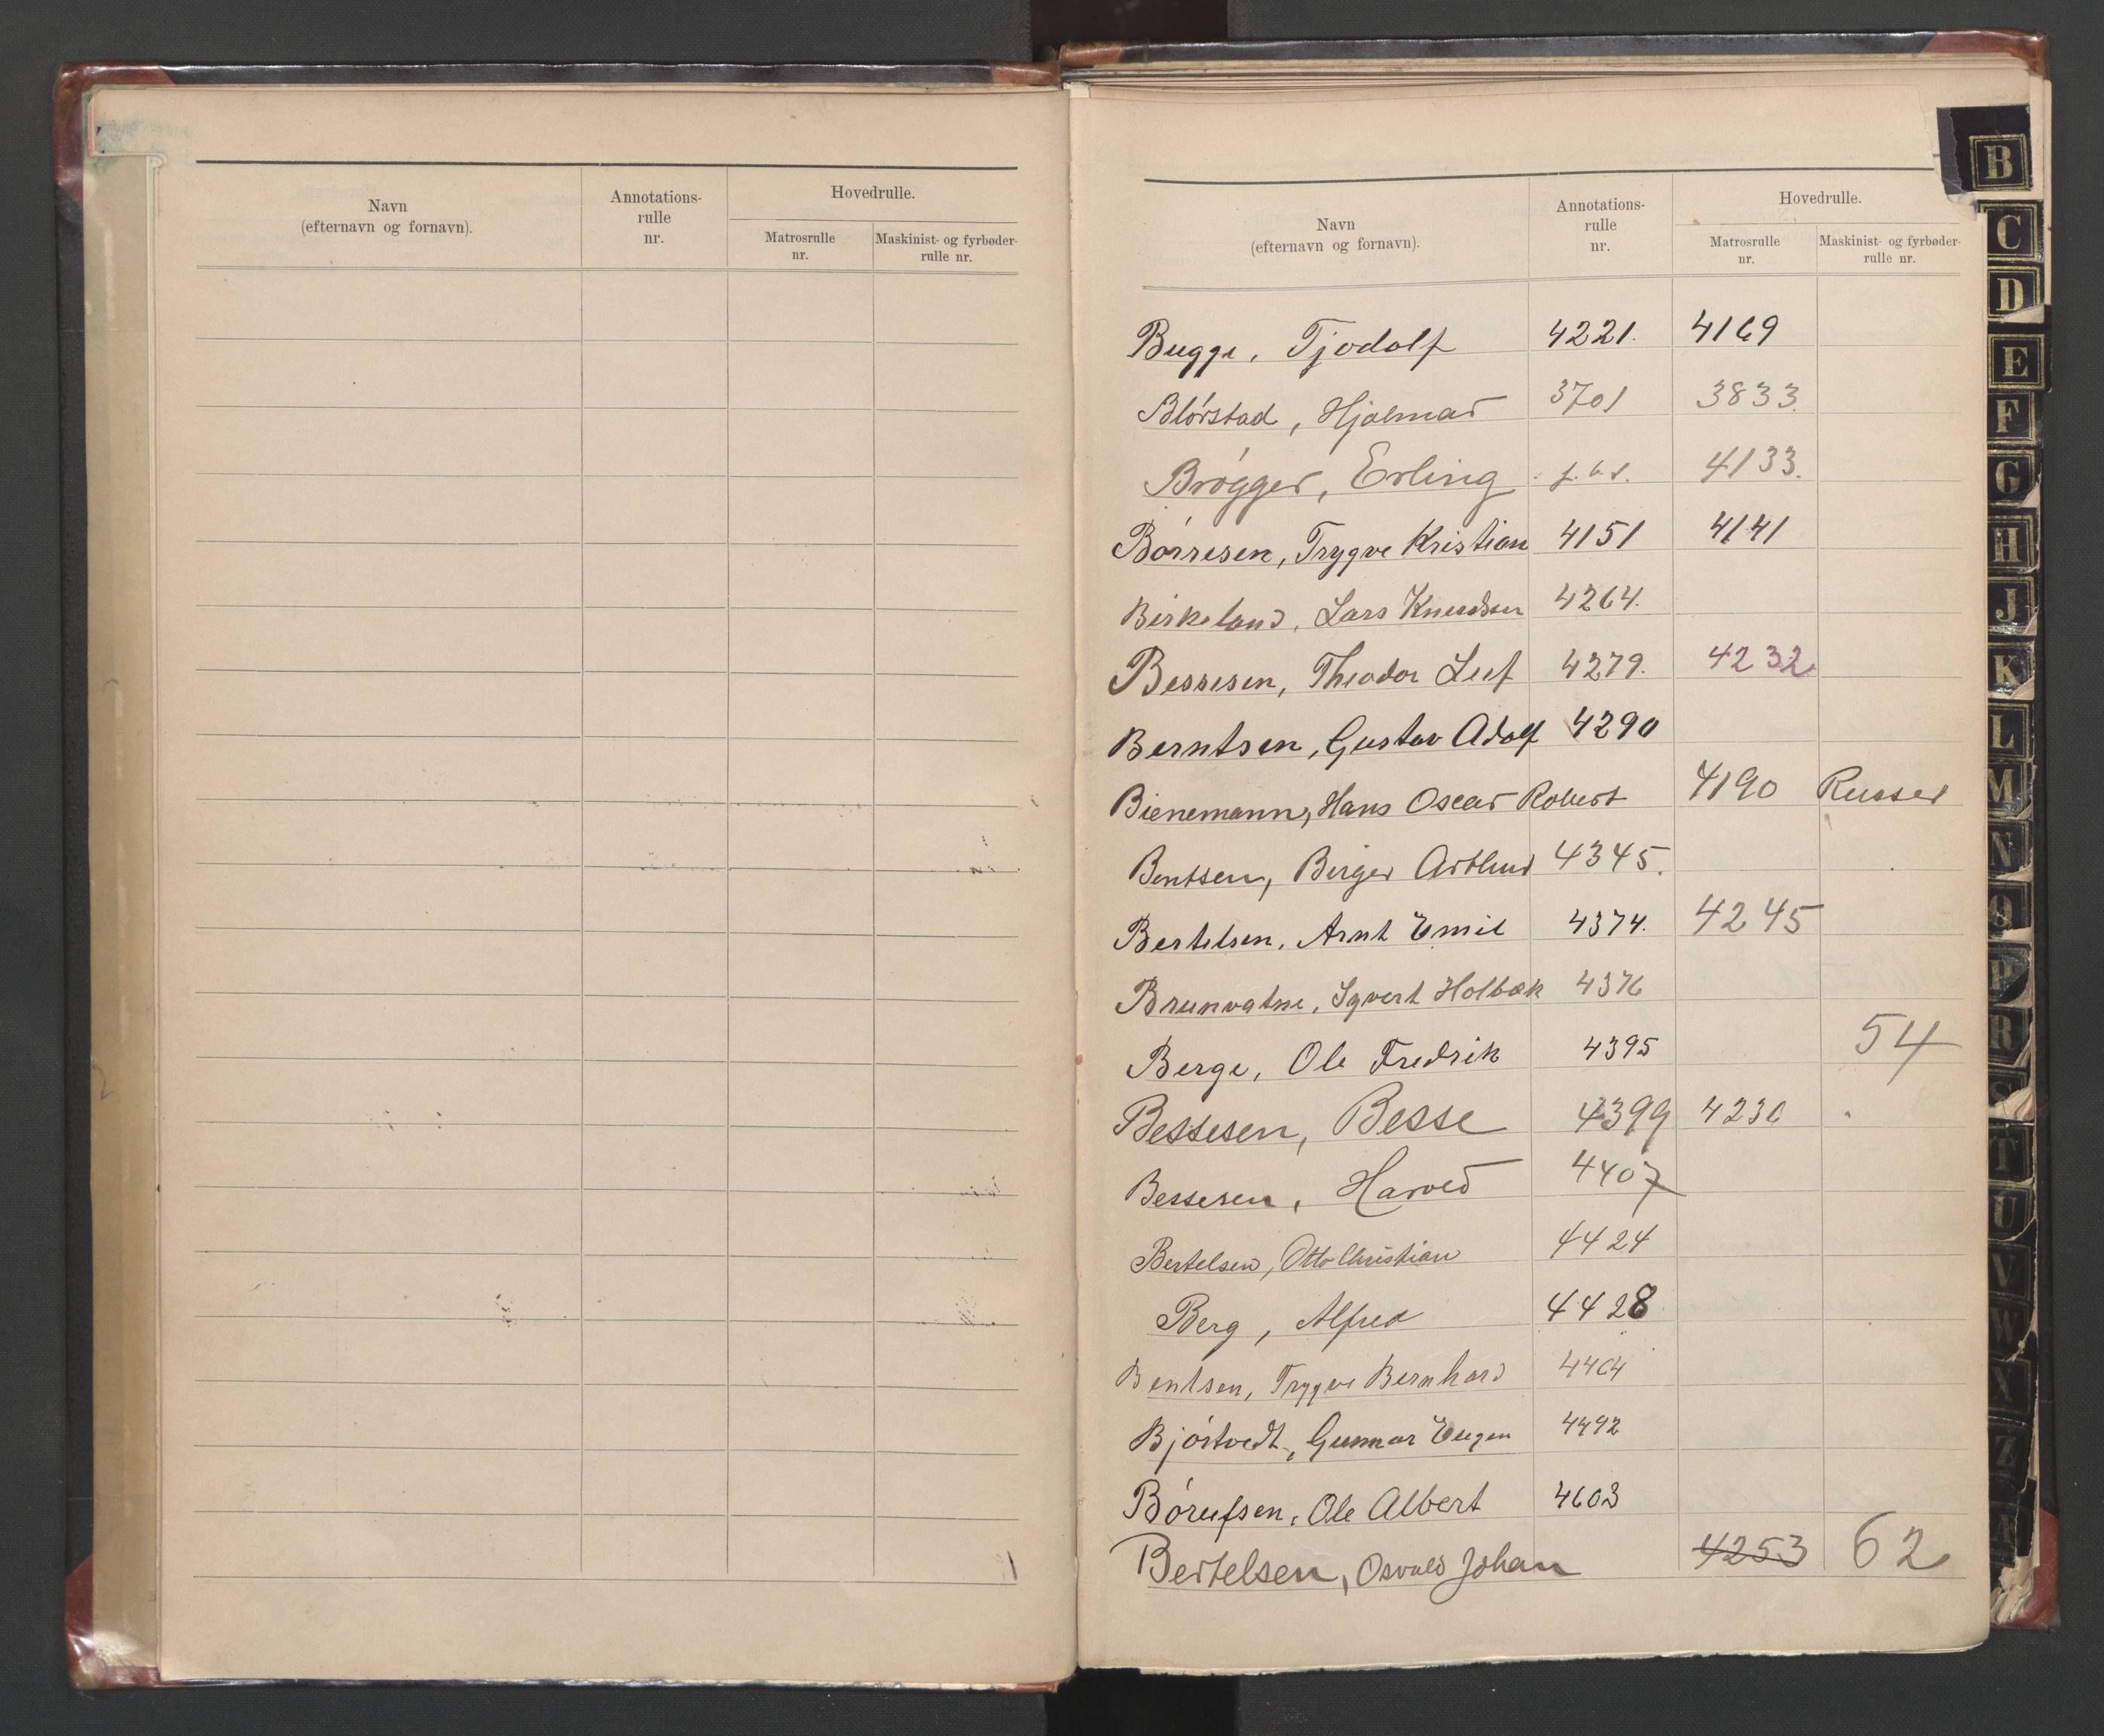 Navn
(efternavn og fornavn).
Annotations-
rulle
nr.
Hovedrulle.
Matrosrulle
nr.
Maskinist- og fyrbøder-
rulle nr.
Navn
(efternavn og fornavn).
Annotations-
rulle
nr.
Hovedrulle.
Matrosrulle
nr.
Maskinist- og fyrbøder-
rulle nr.
Bugge, Tjodolf 4221. 4169
Blórstad, Hjalmar 3701 3833.
Brógger, Erling 4133.
Bórresen, Trygve Kristian 4151 4141
Birkeland, Lars Knudsen 4264.
Bessesen, Theodor Leif 4279. 4232
Berntsen, Gustav Adolf 4290
Bienemann, Hans Oscar Robert 4190 Russer
Bentsen, Birger Arthur 4345.
Bertelsen, Arnt Emil 4374. 4245
Brunvatne, Sgvert Holbæk 4376
Berge, Ole Fredrik 4395 54
Bessesen, Besse 4399 4230
Bessesen, Harved 4407
Bertelsen, Otto Christian 4424
Berg, Alfred 4428
Bentsen, Trygve Bernhard 4464
Bjórtvedt, Gunnar Eugen 4492
Bórufsen, Ole Albert 4603
Bertelsen, Osvald Johan 4253 62
B
C
D
E
F
G
H
J
K
L
M
N
O
P
R
S
T
U
V
W
X
Z